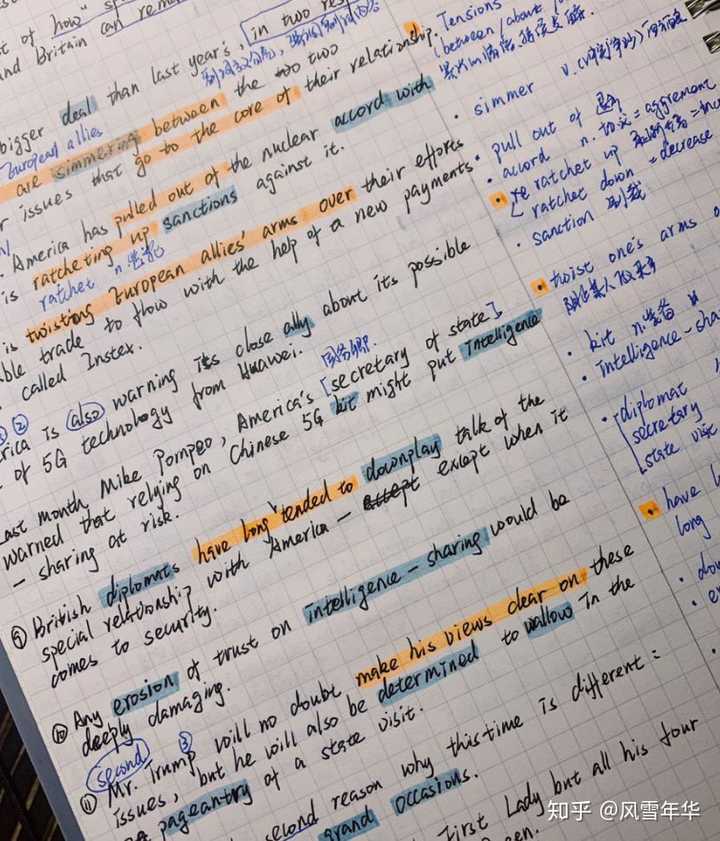 t of how" s
and Britain can rema
bigger deal than last year's, in two res
European allies
are simmering between the two
r issues that go to the core of their relationship.
. America has pulled out of the nuclear accord with
is ratcheting up sanctions against it.
ratchet n.
is twisting European allies' arms over their efforts
ble trade to flow with the help of a new payments
called Instex.
① ②
rica is also warning its close ally about its possible
of 5G technology from Huawei.
国务卿
Last month, Mike Pompeo, America's [secretary of state]
warned that relying on Chinese 5G kit might put intelligence
- sharing at risk.
⑨ British diplomats have long tended to downplay talk of the
special relationship with America - except when it
comes to security.
⑩ Any erosion of trust on intelligence-sharing would be
deeply damaging.
second ③
⑪ Mr. Trump will no doubt make his views clear on these
issues, but he will also be determined to wallow in the
pageantry of a state visit.
second reason why this time is different:
grand occasions.
First Lady but all his four
een.
Tensions
(between/about/
• simmer v.
• pull out of 退出
• accord n. 协议 = aggrement
• ratchet up = inc
ratchet down = decrease
• sanction 制裁
• twist one's arms
• kit n. 装备
• intelligence-sha
• diplomat
secretary
state visit
• have l
long
• do
• e
知乎 @风雪年华